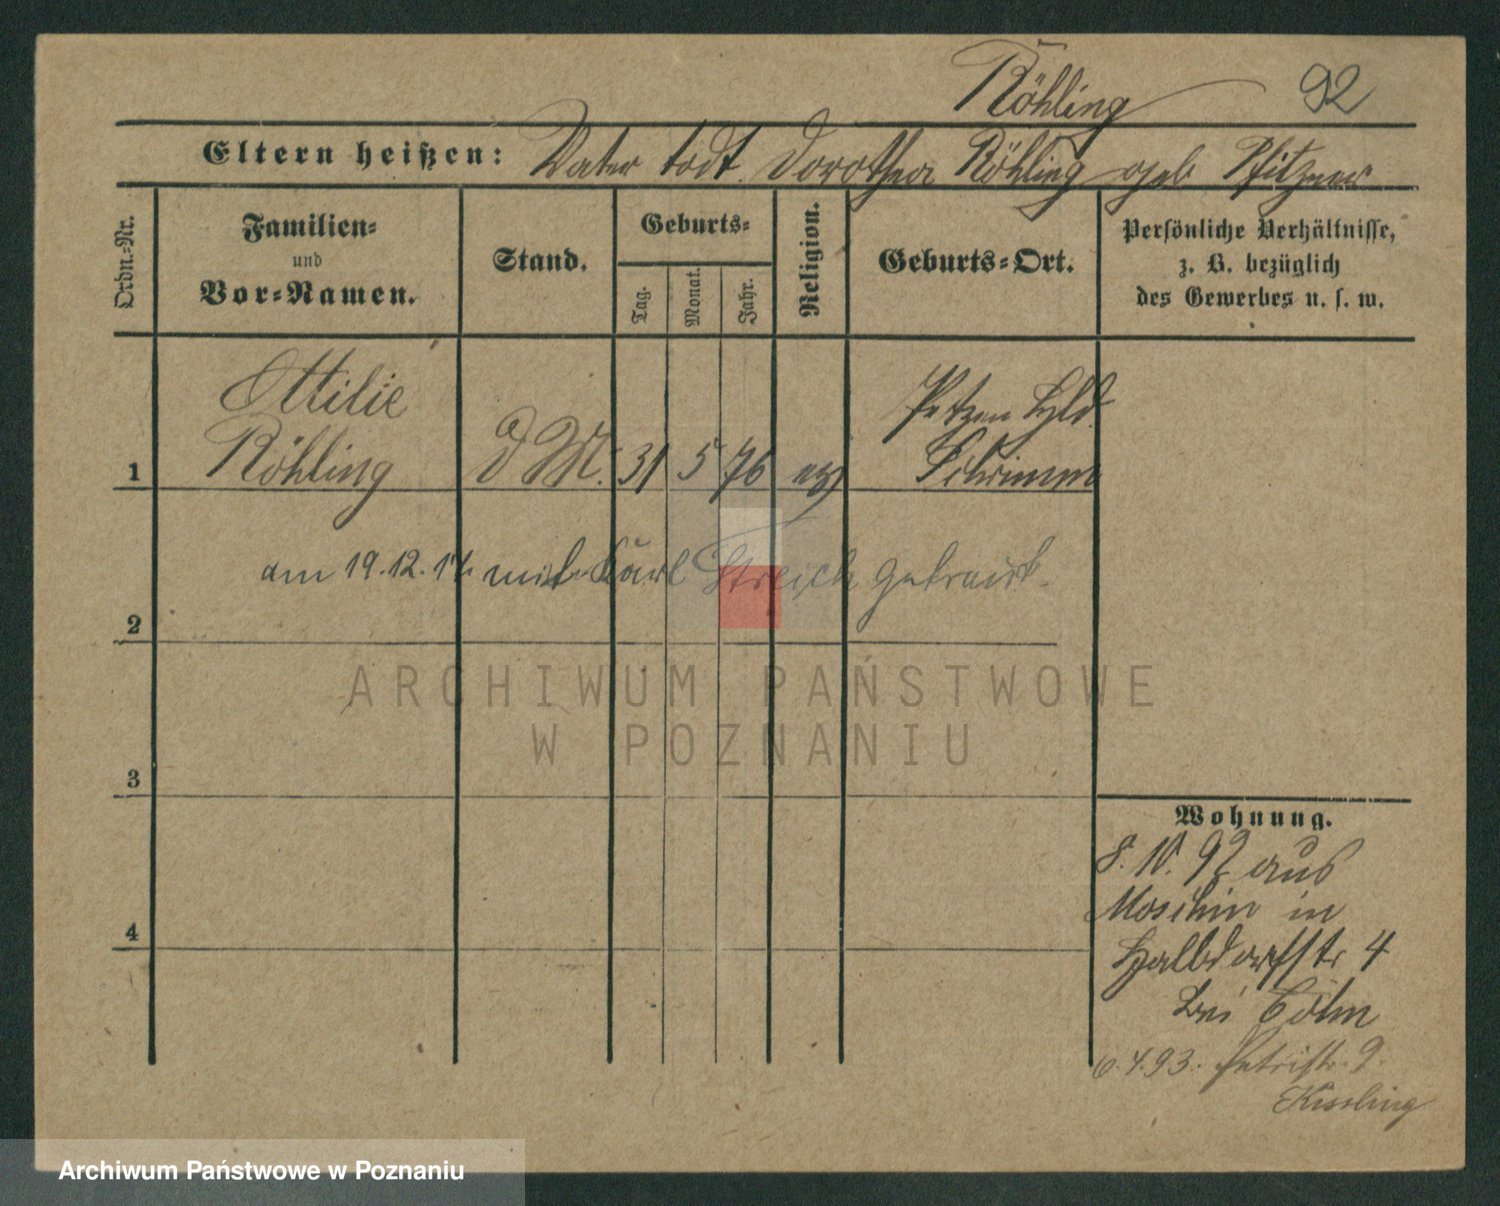 Röhling 92
Eltern heißen: Vater todt. Dorothea Röhling geb Pfitzner
Ordn.-Nr.
Familien-
und
Vor-Namen.
Stand.
Geburts-
Tag.
Monat.
Jahr.
Religion.
Geburts-Ort.
Persönliche Verhältnisse,
z. B. bezüglich
des Gewerbes u. s. w.
Ottilie
Röhling
1
d M. 31 5 76
Schrimm
am 19.12.17 mit Karl Streich getraut.
2
ARCHIWUM PAŃSTWOWE
W POZNANIU
3
4
Wohnung.
8. 10. 92 aus
Moschin in
Halbdorfstr 4
bei
6. 4. 93. Petristr. 9.
Kissling
Archiwum Państwowe w Poznaniu